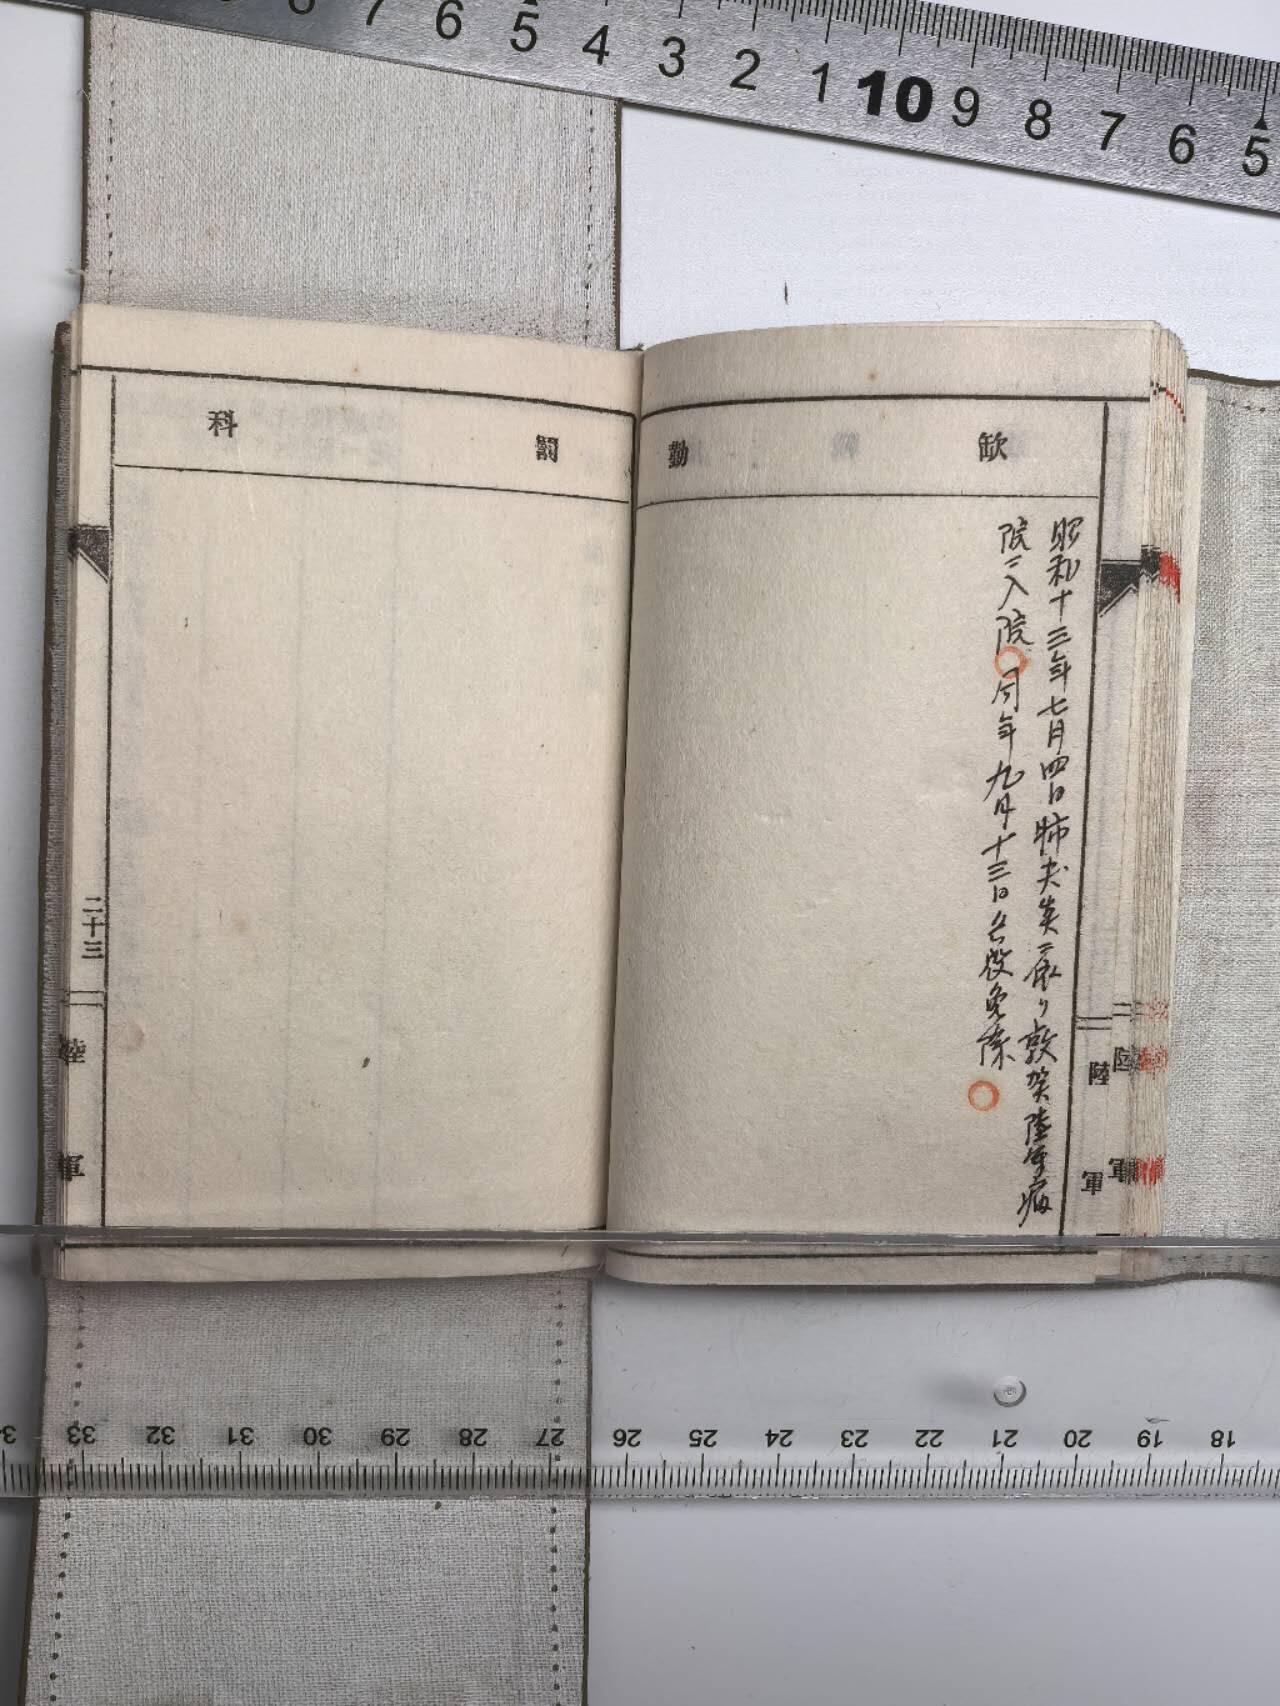 6 5 4 3 2 1 10 9 8 7 6 5
欽勤
昭和十三年七月四日肺尖炎ニ依リ敦賀陸軍病
院ニ入院 同年九月十三日兵役免除
陸軍
陸軍
罰科
二十三
陸軍
33 32 31 30 29 28 27 26 25 24 23 22 21 20 19 18